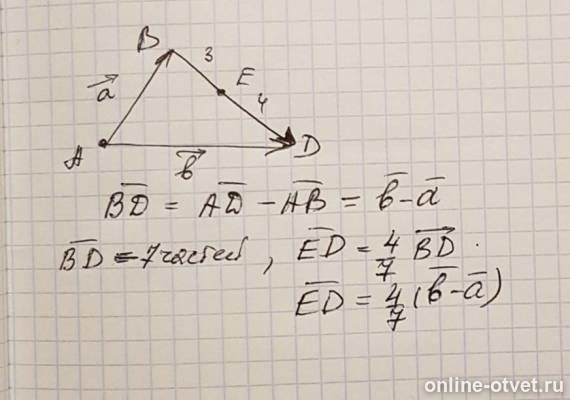 B 3 E 4
a⃗
A b⃗ D
B̅D̅ = A̅D̅ - A̅B̅ = b̅ - a̅
B̅D̅ - 7 частей, E̅D̅ = 4/7 B⃗D⃗.
E̅D̅ = 4/7 (b̅ - a̅)
online-otvet.ru